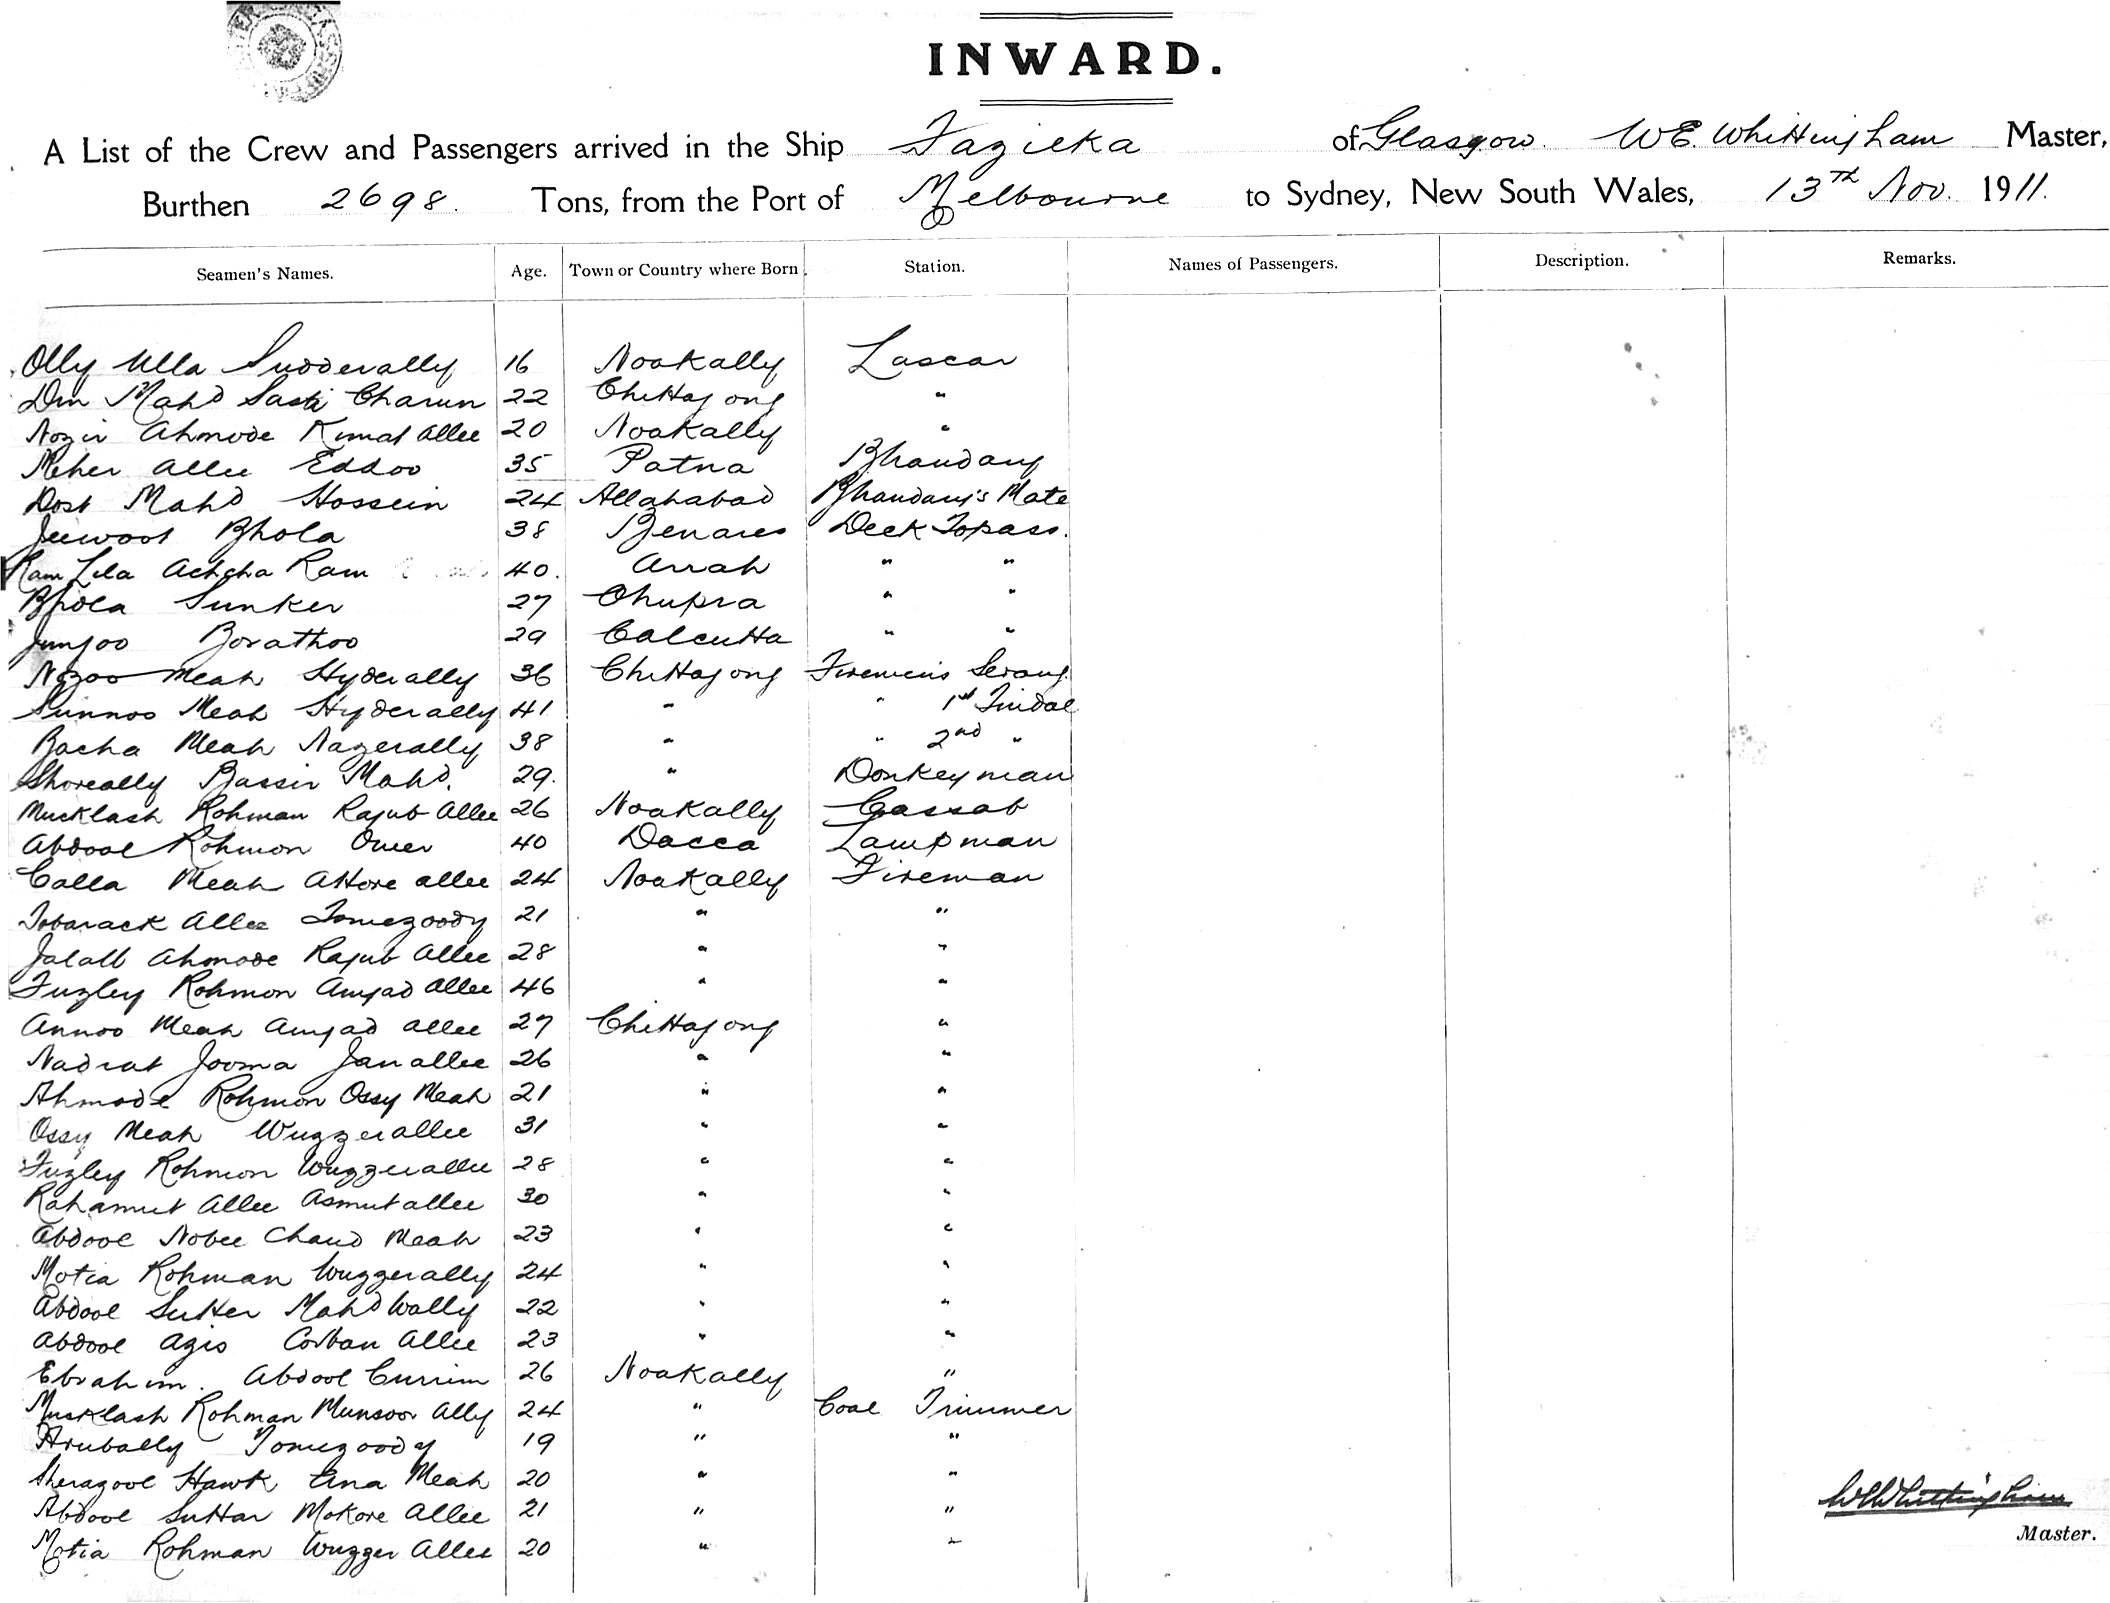 INWARD.
A List of the Crew and Passengers arrived in the Ship Fazilka of Glasgow. WE. Whittingham Master,
Burthen 2698. Tons, from the Port of Melbourne to Sydney, New South Wales, 13th Nov. 1911.
Seamen's Names. Age. Town or Country where Born. Station. Names of Passengers. Description. Remarks.
Olly Ulla Sudderally 16 Noakally Lascar
Din Mahd Sasti Charun 22 Chittagong "
Nozir Ahmode Kimat Allee 20 Noakally "
Meher Allee Eddoo 35 Patna Bhandary
Dost Mahd Hossein 24 Allahabad Bhandary's Mate
Jeewoot Bhola 38 Benares Deck Topass.
Ram Lila Achcha Ram 40. Arrah " "
Bhola Sunker 27 Chupra " "
Junjoo Borathoo 29 Calcutta " "
Nozoo Meah Hyderally 36 Chittagong Firemen's Serang.
Sunnoo Meah Hyderally 41 " " 1st Tindal
Bacha Meah Nazerally 38 " " 2nd "
Shoreally Bassir Mahd. 29. " Donkeyman
Mucklash Rohman Rajub Allee 26 Noakally Cassab
Abdool Rohmon Omer 40 Dacca Lampman
Calla Meah Attore allee 24 Noakally Fireman
Tobarack Allee Tomezoody 21 " "
Jalall Ahmode Rajub Allee 28 " "
Fuzley Rohmon Amjad Allee 46 " "
Annoo Meah Amjad Allee 27 Chittagong "
Nadrat Jooma Janallee 26 " "
Ahmode Rohmon Ossy Meah 21 " "
Ossy Meah Wuzzerallee 31 " "
Fuzley Rohmon Wuzzerallee 28 " "
Rahamut Allee Asmutallee 30 " "
Abdool Nobee Chand Meah 23 " "
Motia Rohman Wuzzerally 24 " "
Abdool Sutter Mahd Wally 22 " "
Abdool Azis Corban Allee 23 " "
Ebrahim. Abdool Currim 26 Noakally "
Musklash Rohman Munsoor Ally 24 " Coal Trimmer
Arubally Tomezoody 19 " "
Sherazool Hawk Ena Meah 20 " "
Abdool Suttar Mokore Allee 21 " "
Motia Rohman Wuzzer Allee 20 " "
WEWhittingham
Master.